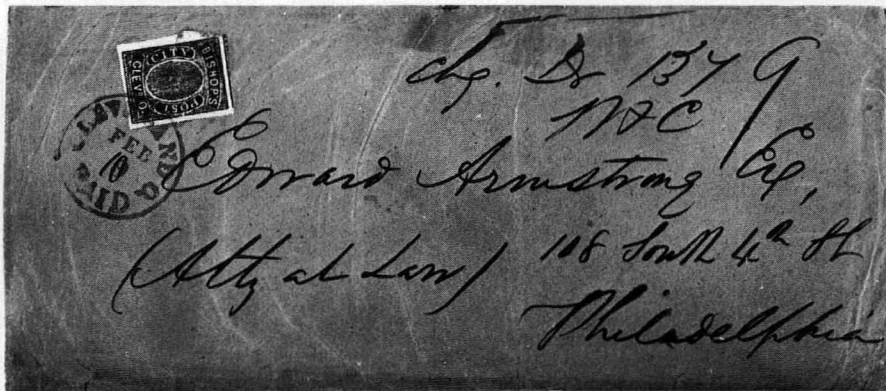 BISHOP'S
CITY
POST
CLEV. O.
CLEVELAND O.
FEB
10
PAID
chg. Dr 137 9
Edward Armstrong Esq,
(Atty at Law) 108 South 4th St
Philadelphia